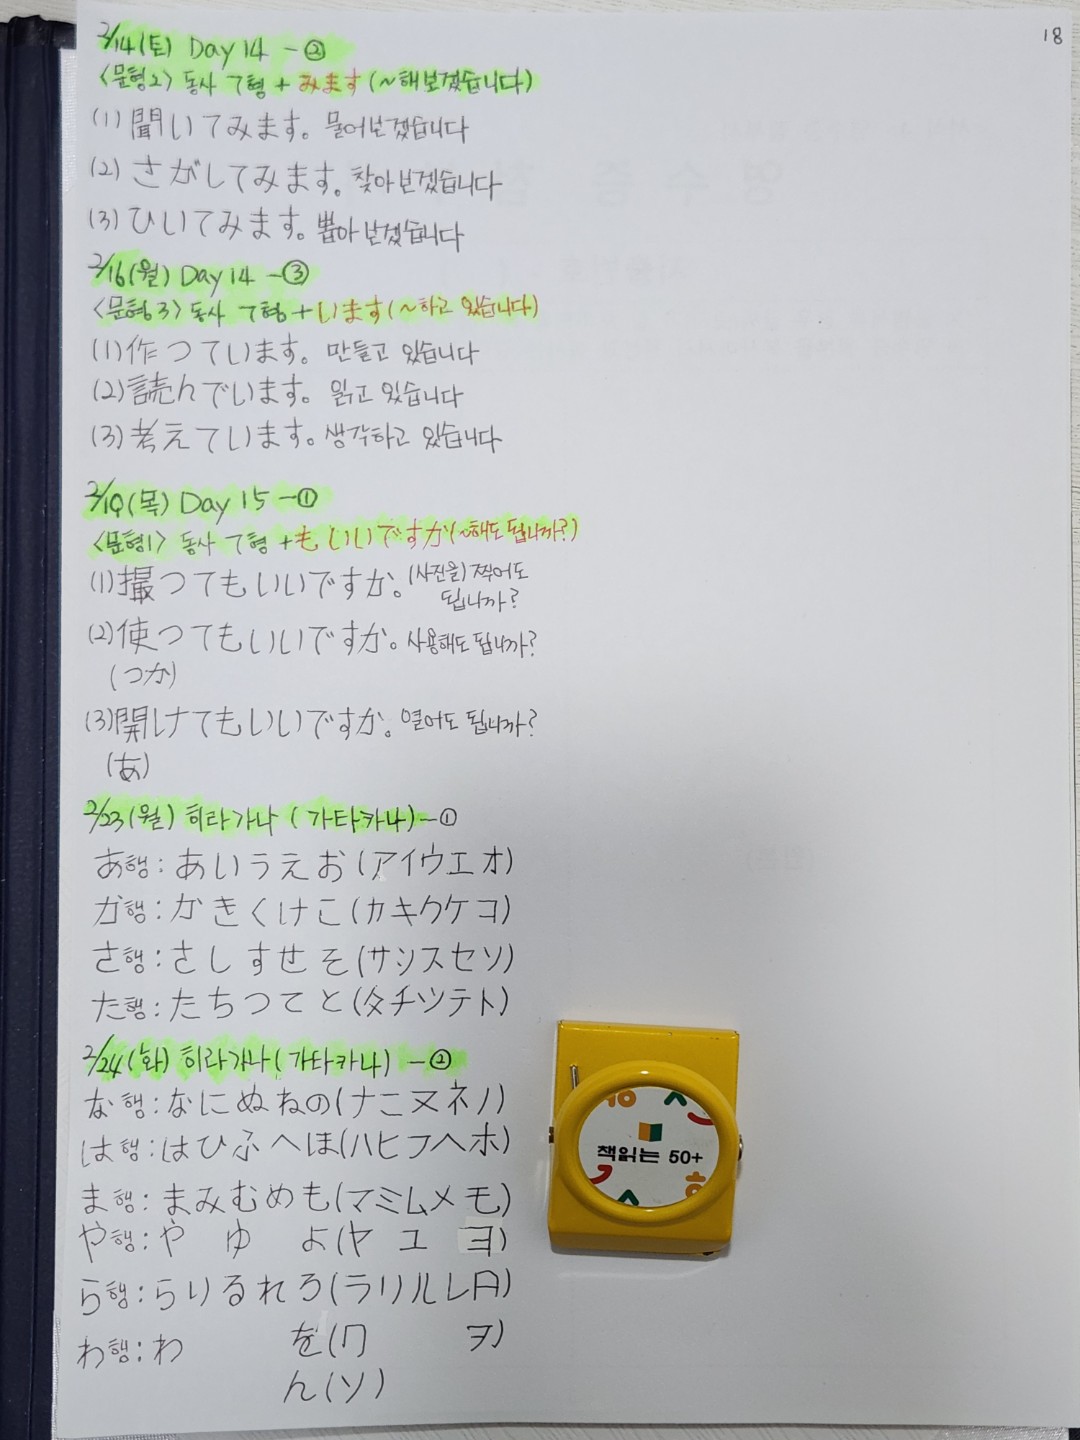 18
2/14(토) Day 14 -②
<문형2> 동사 て형 + みます (~해보겠습니다)
(1) 聞いてみます。 물어보겠습니다
(2) さがしてみます。 찾아보겠습니다
(3) ひいてみます。 뽑아보겠습니다
2/16(월) Day 14 -③
<문형3> 동사 て형 + います (~하고 있습니다)
(1) 作つています。 만들고 있습니다
(2) 読んでいます。 읽고 있습니다
(3) 考えています。 생각하고 있습니다
2/19(목) Day 15 -①
<문형1> 동사 て형 + もいいですか (~해도 됩니까?)
(1) 撮つてもいいですか。 (사진을) 찍어도
됩니까?
(2) 使つてもいいですか。 사용해도 됩니까?
(つか)
(3) 開けてもいいですか。 열어도 됩니까?
(あ)
2/23(월) 히라가나 (가타카나) -①
あ행: あいうえお (アイウエオ)
か행: かきくけこ (カキクケコ)
さ행: さしすせそ (サシスセソ)
た행: たちつてと (タチツテト)
2/24(화) 히라가나 (가타카나) -②
な행: なにぬねの (ナニヌネノ)
は행: はひふへほ (ハヒフヘホ)
ま행: まみむめも (マミムメモ)
책읽는 50+
や행: や ゆ よ (ヤ ユ ヨ)
ら행: らりるれろ (ラリルレ日)
わ행: わ を (ワ ヲ)
ん (ソ)